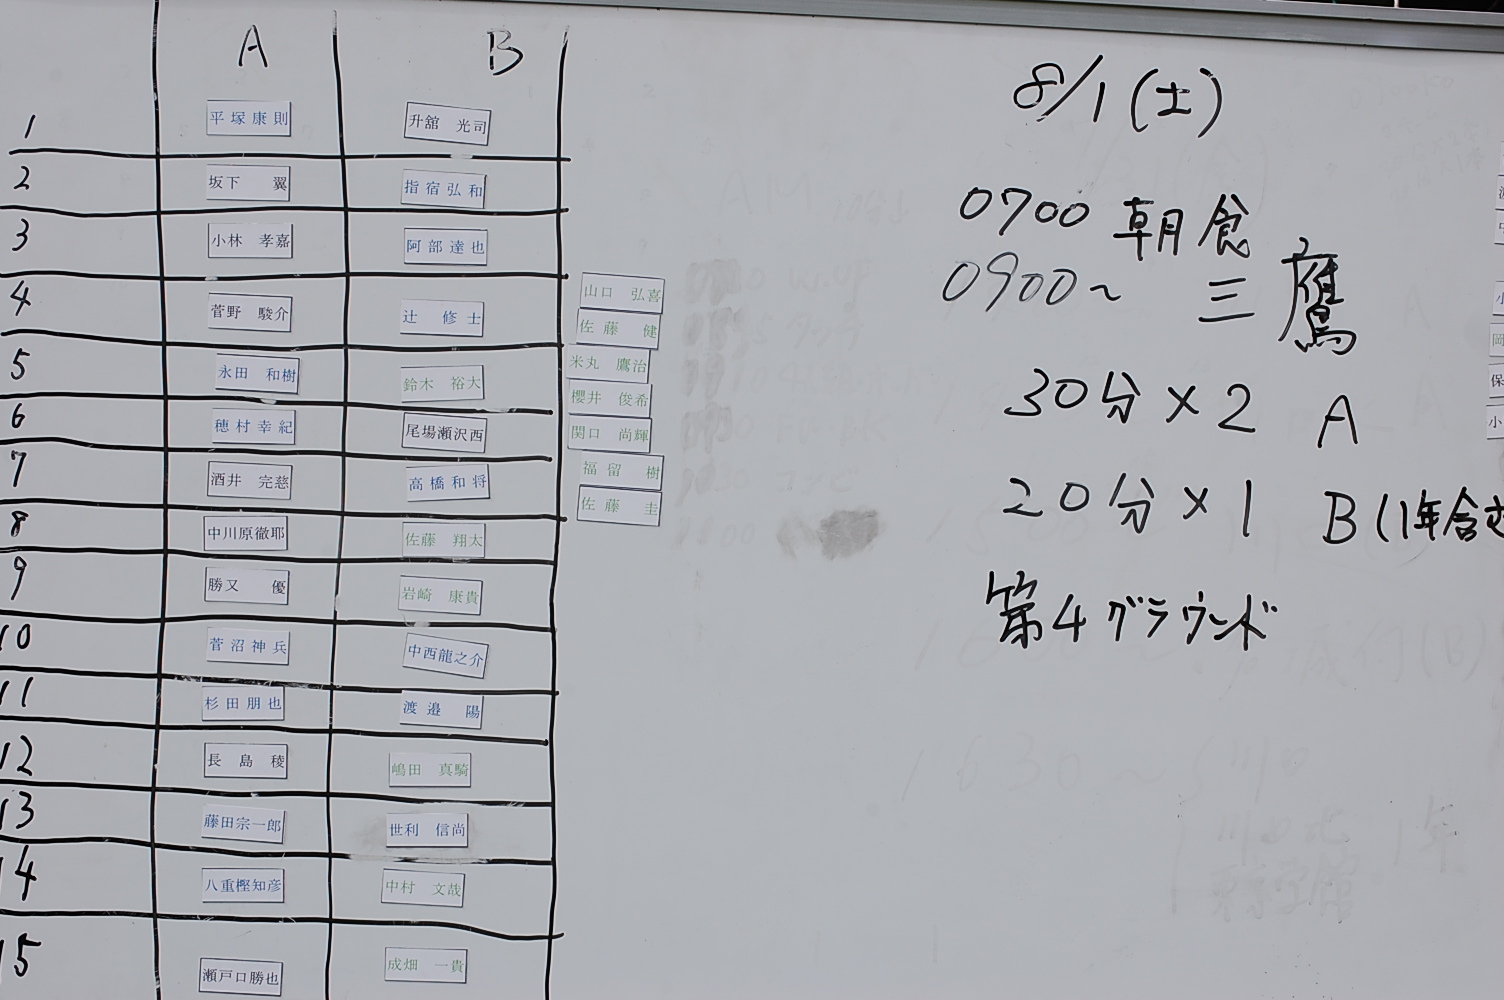 A B
1 平塚康則 升舘 光司
2 坂下 翼 指宿弘和
3 小林 孝嘉 阿部達也
4 菅野 駿介 辻 修士
5 永田 和樹 鈴木 裕大
6 穂村幸紀 尾場瀬沢西
7 酒井 完慈 高橋和将
8 中川原徹耶 佐藤 翔太
9 勝又 優 岩崎 康貴
10 菅沼神兵 中西龍之介
11 杉田朋也 渡邉 陽
12 長島 稜 嶋田 真騎
13 藤田宗一郎 世利 信尚
14 八重樫知彦 中村 文哉
15 瀬戸口勝也 成畑 一貴
山口 弘喜
佐藤 健
米丸 鷹治
櫻井 俊希
関口 尚輝
福留 樹
佐藤 圭
8/1(土)
0700 朝食
0900~ 三鷹
30分×2 A
20分×1 B(1年含む
第4グラウンド